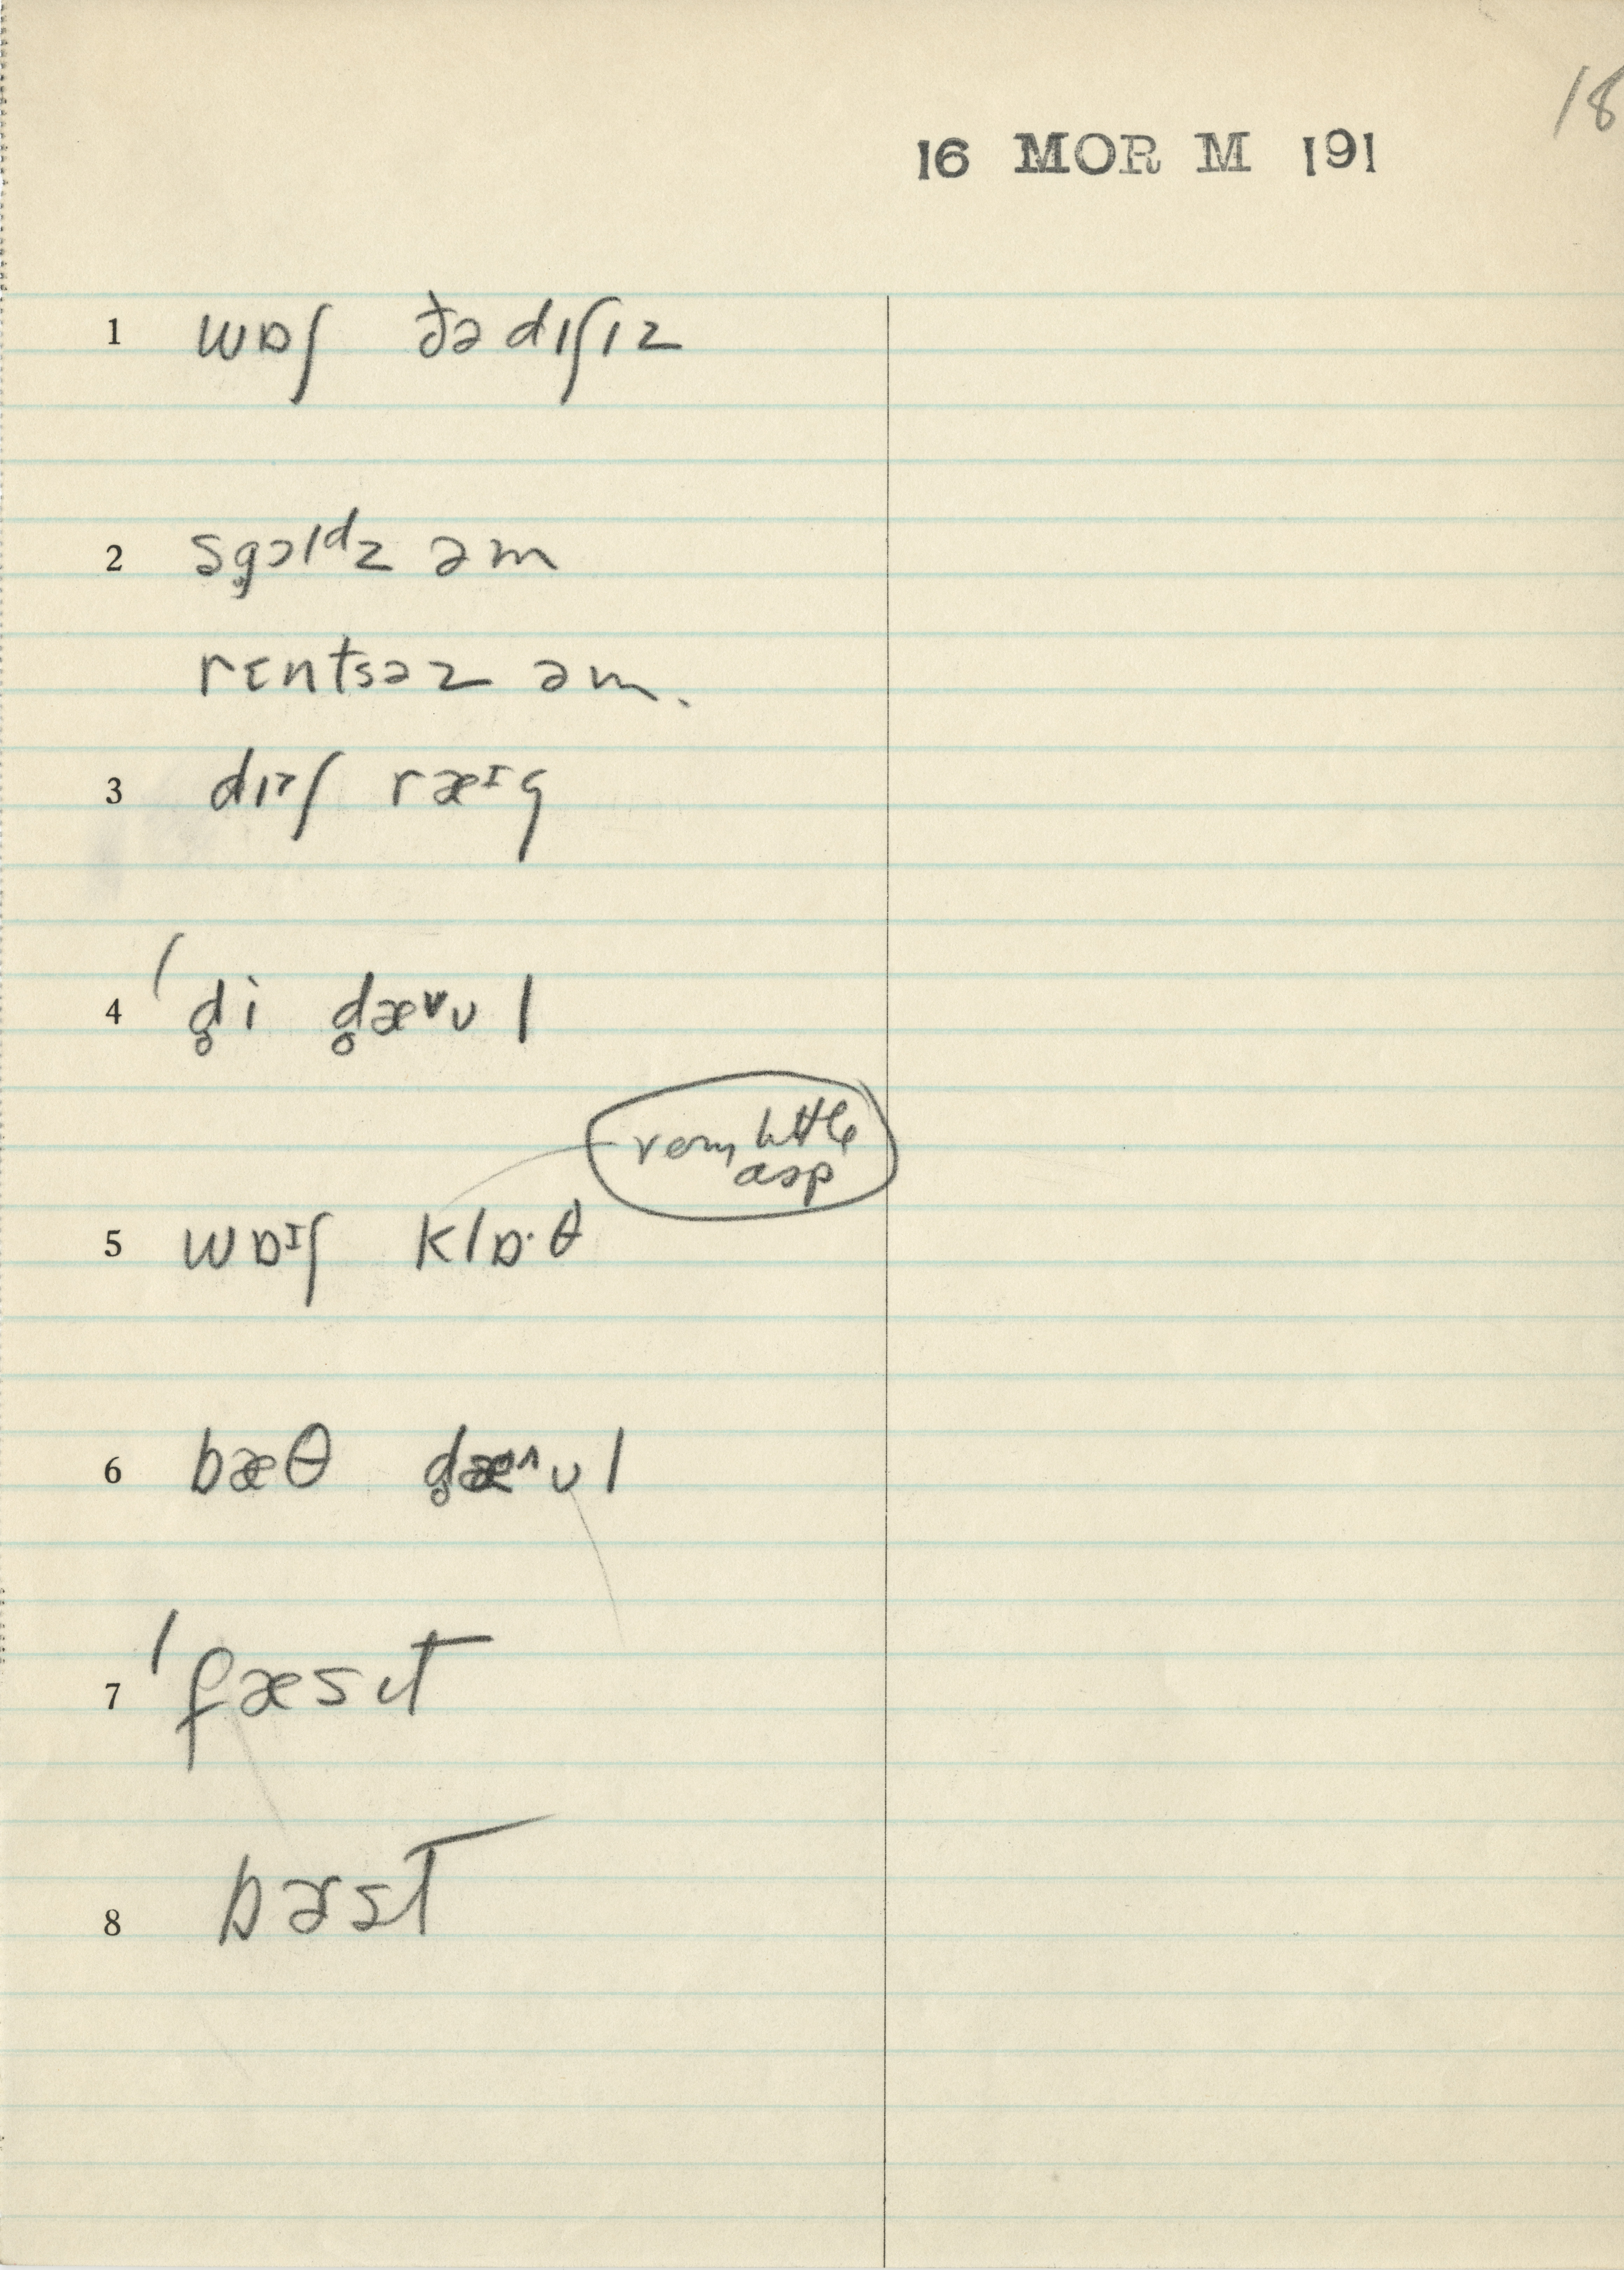 18
16 MOR M 191
1 wɒʃ ðə dɪʃɪz
2 sg̥ɔlᵈz əm
rɛntsəz əm.
3 dɪɪʃ ræᶦg
4 ˈd̥i d̥æᵾʊl
very little
asp
5 wɒᶦʃ klɒ·θ
6 bæθ d̥æᶺʊl
7 ˈfæsɪt
8 bæsɪt